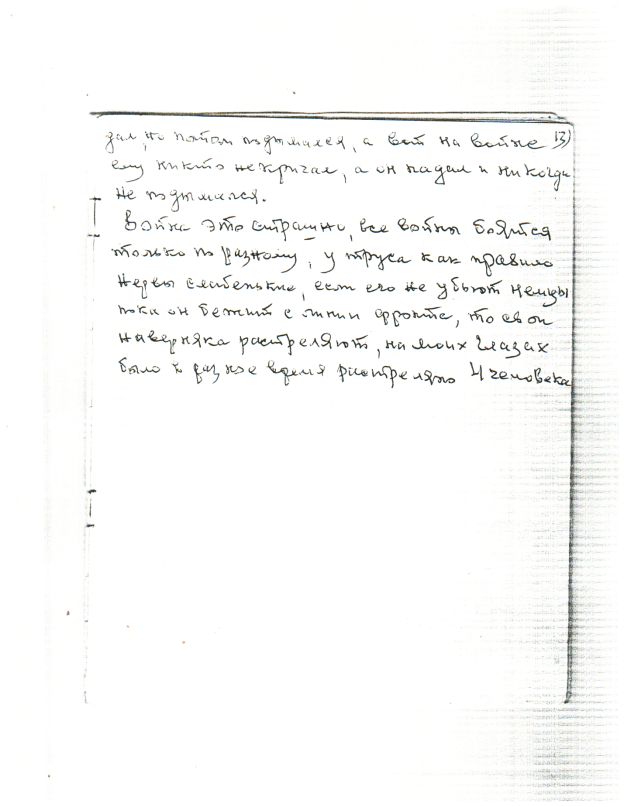 дал, но потом подымался, а вот на войне 13)
ему никто не кричал, а он падал и никогда
не подымался.
Война это страшно, все войны боятся
только по разному, у труса как правило
нервы слабенькие, если его не убьют немцы
пока он бежит с линии фронта, то свои
наверняка растреляют, на моих глазах
было в разное время растреляно 4 человека